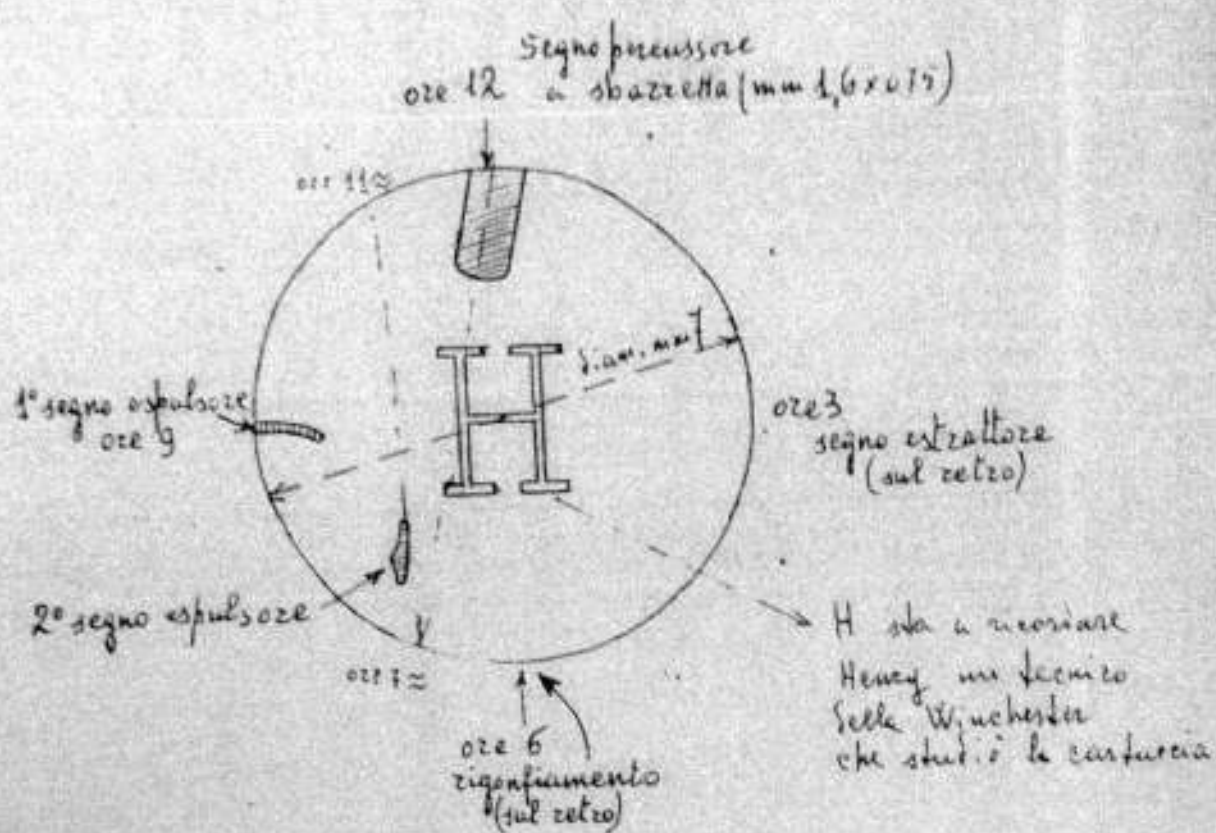 Segno percussore
ore 12 a sbarretta (mm 1,6 x 0,75)
ore 11 ≈
diam. mm 7
H
1° segno espulsore
ore 9
ore 3
segno estrattore
(sul retro)
2° segno espulsore
ore 7 ≈
ore 6
rigonfiamento
(sul retro)
H sta a ricordare
Henry un tecnico
della Winchester
che studiò la cartuccia